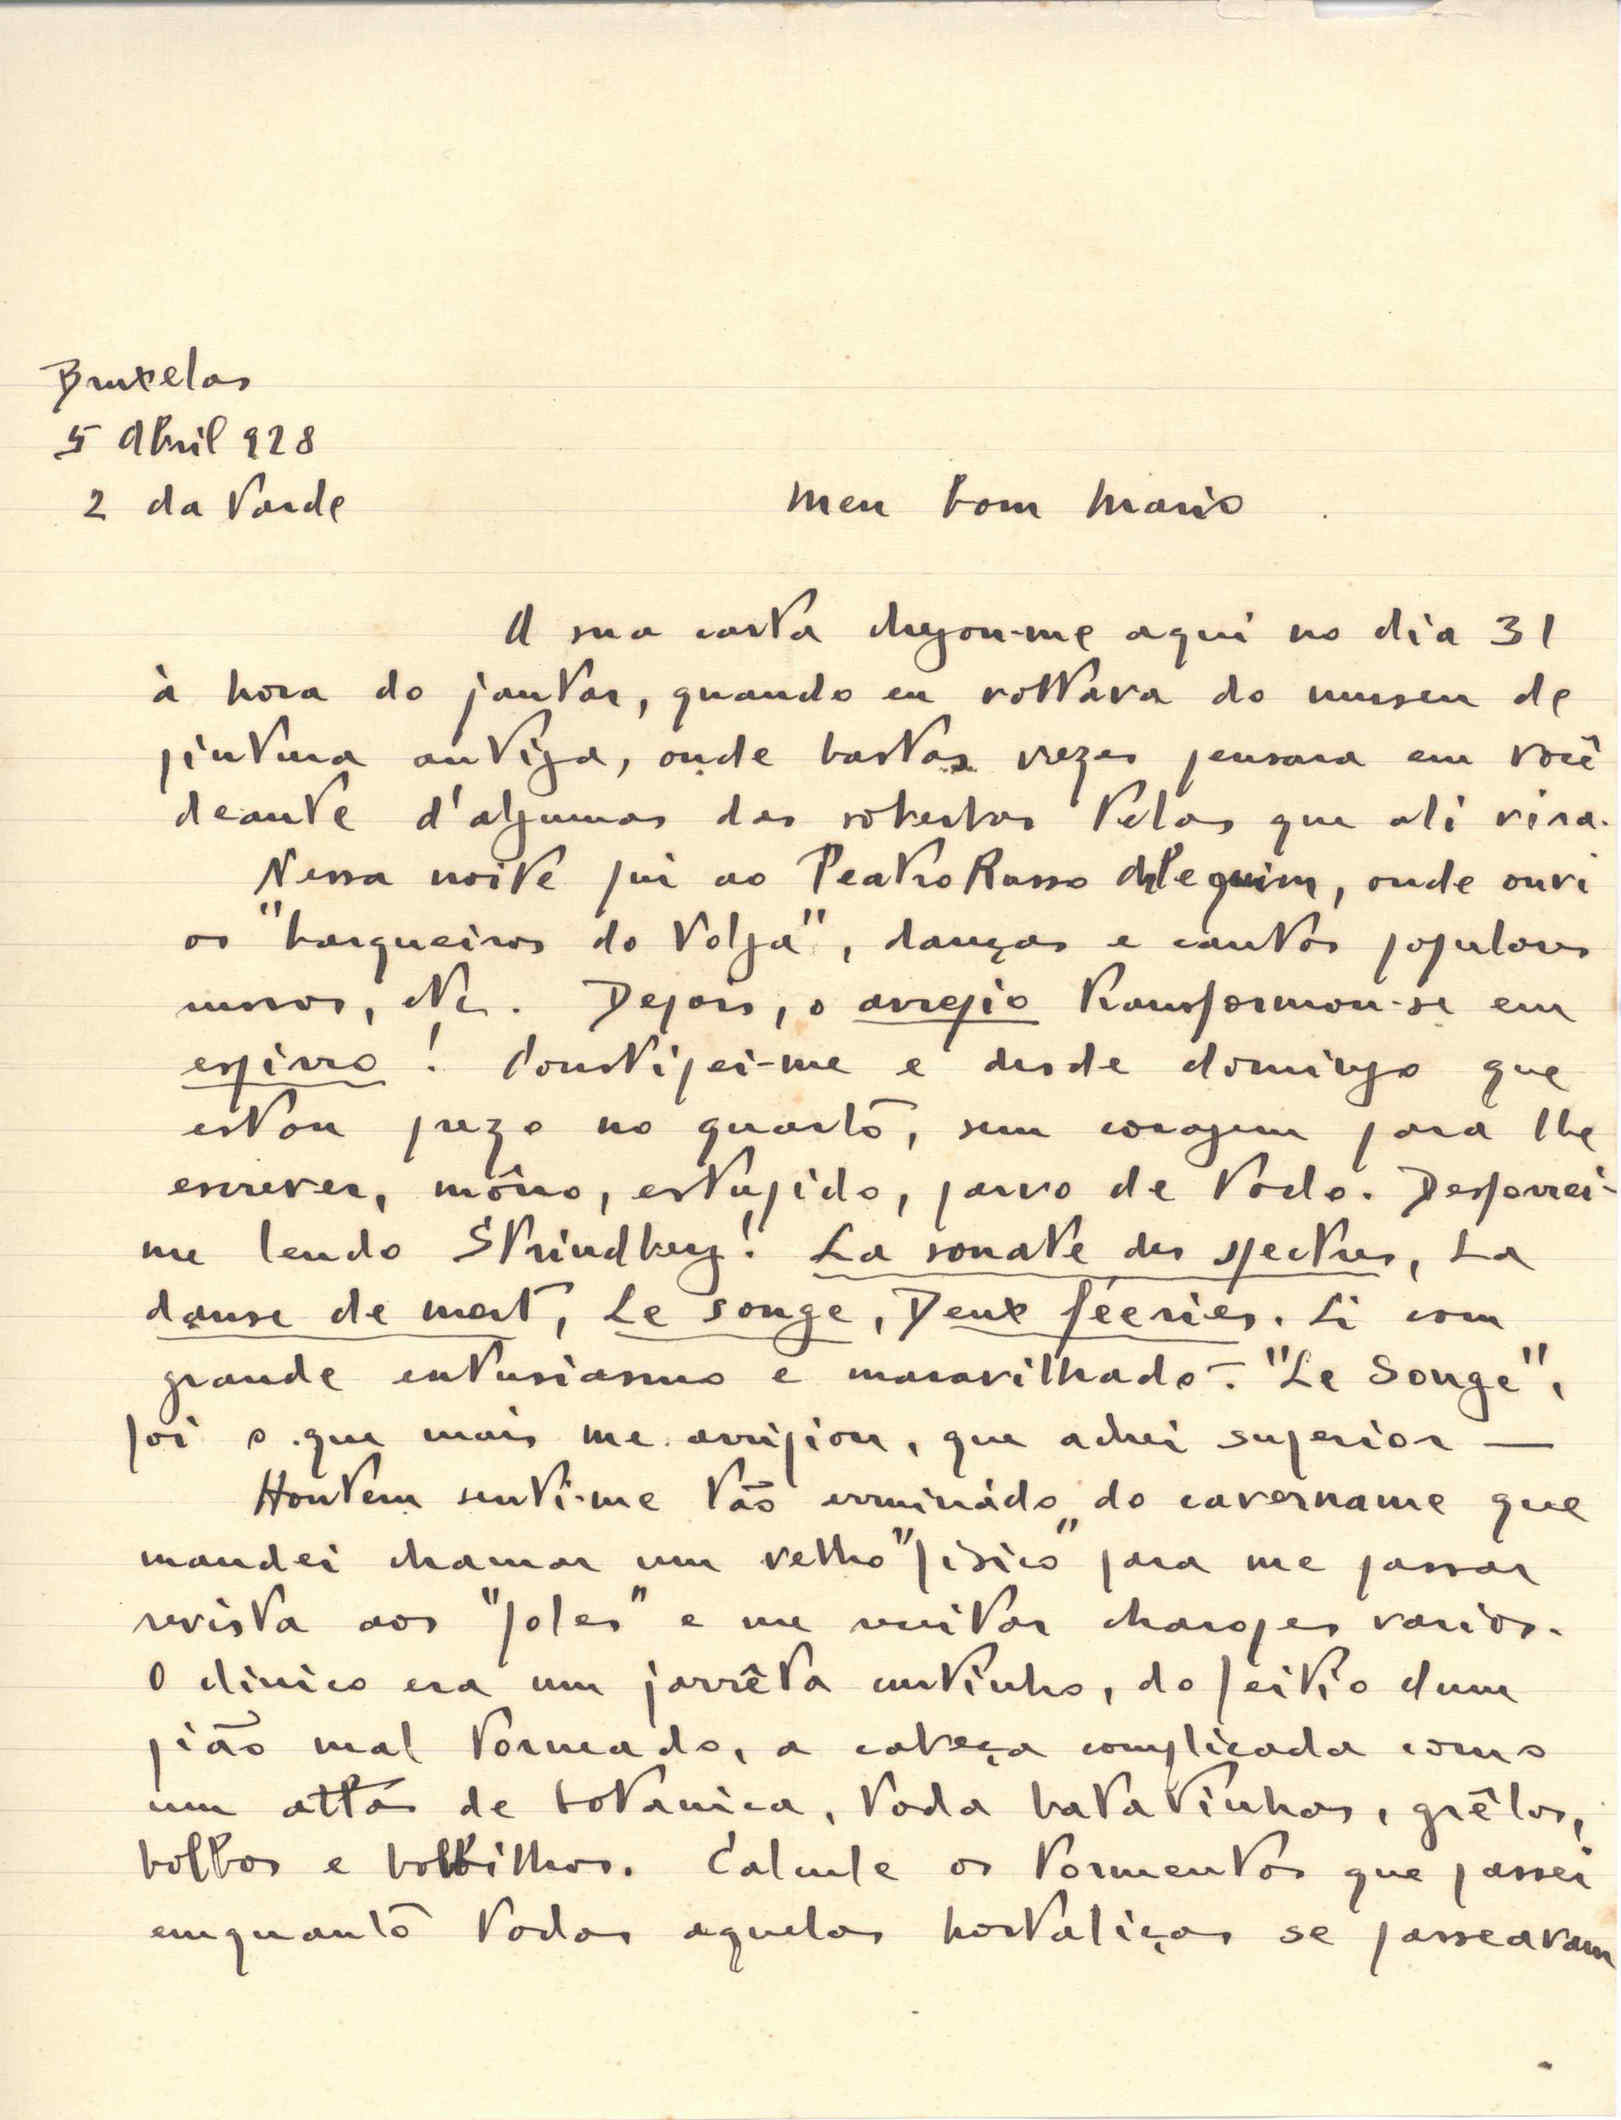 Bruxelas
5 Abril 928
2 da tarde
Meu bom Mario
A sua carta chegou-me aqui no dia 31
à hora do jantar, quando eu voltava do museu de
pintura antiga, onde bastas vezes pensara em você
deante d'algumas das soberbas telas que ali vira.
Nessa noite fui ao Teatro Russo Arlequim, onde ouvi
os "barqueiros do Volga", danças e cantos populares
russos, etc. Depois, o arrepio transformou-se em
espirro! Constipei-me e desde domingo que
estou prezo no quarto, sem coragem para lhe
escrever, môno, estupido, parvo de todo. Desforrei-
me lendo Strindberg! La sonate des spectres, La
danse de mort, Le songe, Deux féeries. Li com
grande entusiasmo e maravilhado. "Le Songe",
foi o que mais me arripiou, que achei superior —
Hontem senti-me tão do cavername que
mandei chamar um velho "fisico" para me passar
revista aos "foles" e me receitar charopes varios.
O clinico era um jarrêta curtinho, do feitio dum
pião mal torneado, a cabeça complicada como
um atlas de botanica, toda batatinhas, grêlos,
bolbos e bolbilhos. Calcule os tormentos que passei
emquanto todas aquelas hortaliças se passeavam